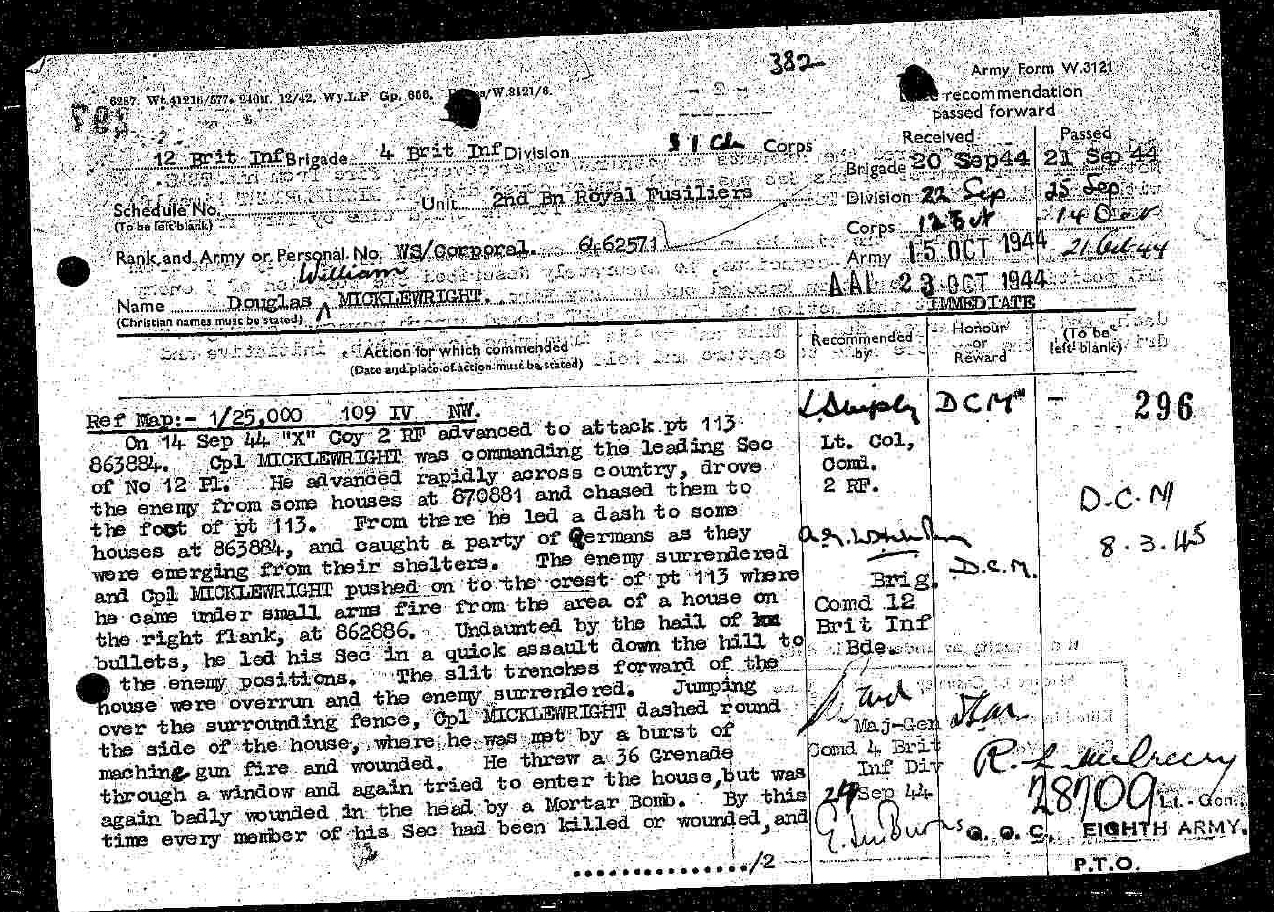 382
Army Form W.3121
6287. Wt.41216/577. 240M. 12/42. Wy.L.P. Gp. 656. /W.3121/6.
- 2 -
recommendation
passed forward
Received Passed
12 Brit Inf Brigade 4 Brit Inf Division Corps
Brigade 20 Sep 44 21 Sep 44
Schedule No. Unit 2nd Bn Royal Fusiliers
(To be left blank)
Division 22 Sep 25 Sep
Corps 14 Oct
Rank and Army or Personal No. WS/Corporal. 6462571
Army 15 OCT 1944 21 Oct 44
William
AAI 23 OCT 1944
Name Douglas ^ MICKLEWRIGHT.
IMMEDIATE
(Christian names must be stated)
Action for which commended
(Date and place of action must be stated)
Recommended by
Honour or Reward
(To be left blank)
Ref Map:- 1/25,000 109 IV NW.
On 14 Sep 44 "X" Coy 2 RF advanced to attack pt 113
863884. Cpl MICKLEWRIGHT was commanding the leading Sec
of No 12 Pl. He advanced rapidly across country, drove
the enemy from some houses at 870881 and chased them to
the foot of pt 113. From there he led a dash to some
houses at 863884, and caught a party of Germans as they
were emerging from their shelters. The enemy surrendered
and Cpl MICKLEWRIGHT pushed on to the crest of pt 113 where
he came under small arms fire from the area of a house on
the right flank, at 862886. Undaunted by the hail of
bullets, he led his Sec in a quick assault down the hill to
the enemy positions. The slit trenches forward of the
house were overrun and the enemy surrendered. Jumping
over the surrounding fence, Cpl MICKLEWRIGHT dashed round
the side of the house, where he was met by a burst of
machine gun fire and wounded. He threw a 36 Grenade
through a window and again tried to enter the house, but was
again badly wounded in the head by a Mortar Bomb. By this
time every member of his Sec had been killed or wounded, and
............../2
Lt. Col,
Comd.
2 RF.
Brig.
Comd 12
Brit Inf
Bde.
Maj-Gen
Comd 4 Brit
Inf Div
24 Sep 44
DCM
D.C.M.
Star
R. L. McCreery
28709 Lt.-Gen.
G. O. C. EIGHTH ARMY.
P.T.O.
- 296
D.C.M
8.3.45